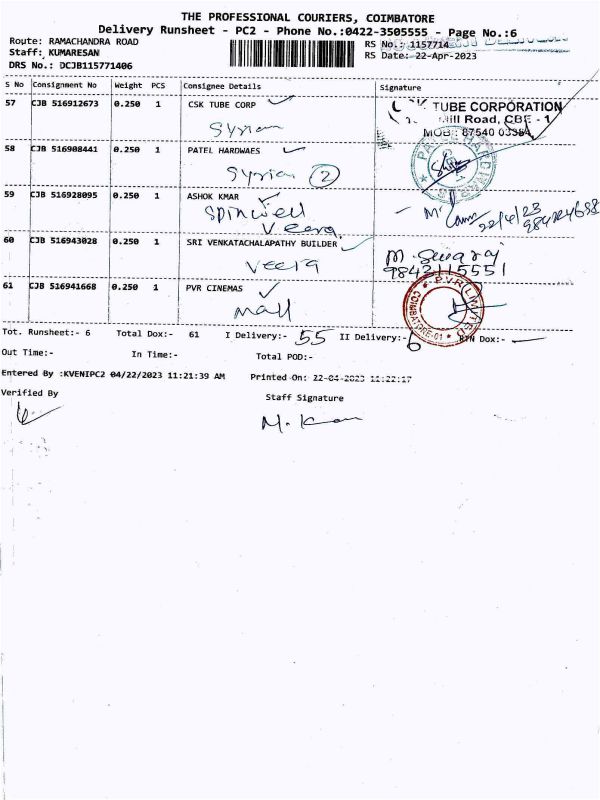 THE PROFESSIONAL COURIERS, COIMBATORE
Delivery Runsheet - PC2 - Phone No.:0422-3505555 - Page No.:6
Route: RAMACHANDRA ROAD
RS No.: 1157714
Staff: KUMARESAN
RS Date: 22-Apr-2023
DRS No.: DCJB115771406
S No Consignment No Weight PCS Consignee Details Signature
57 CJB 516912673 0.250 1 CSK TUBE CORP
TUBE CORPORATION
Mill Road, CBE - 1
MOB: 87540 03384
Syrian
58 CJB 516908441 0.250 1 PATEL HARDWAES
Syrian 2
59 CJB 516928095 0.250 1 ASHOK KMAR
Spinwell
Veera
22/4/23
60 CJB 516943028 0.250 1 SRI VENKATACHALAPATHY BUILDER
Veera
9843115551
61 CJB 516941668 0.250 1 PVR CINEMAS
Mall
PVR LIMITED
COIMBATORE-01
Tot. Runsheet:- 6 Total Dox:- 61 I Delivery:- 55 II Delivery:- 6 RTN Dox:- -
Out Time:- In Time:- Total POD:-
Entered By :KVENIPC2 04/22/2023 11:21:39 AM Printed On: 22-04-2023 11:22:17
Verified By
Staff Signature